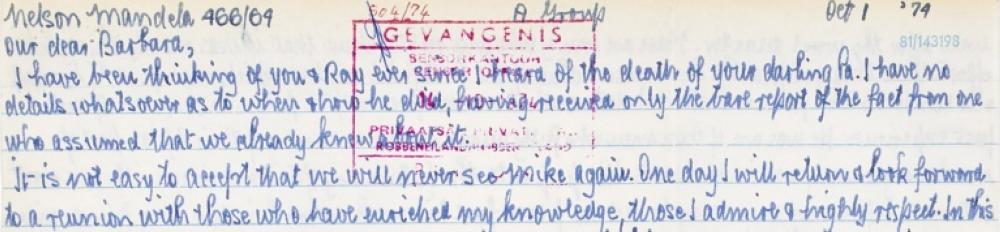 Nelson Mandela 466/64 504/74 A Group Oct 1 '74
Our dear Barbara, GEVANGENIS 81/143198
SENSORKANTOOR
I have been thinking of you & Ray ever since I heard of the death of your darling Pa. I have no
details whatsoever as to when & how he died, having received only the bare report of the fact from one
who assumed that we already knew about it.
PRIVAATSAK
ROBBENEILAND
It is not easy to accept that we will never see Mike again. One day I will return & look forward
to a reunion with those who have enriched my knowledge, those I admire & highly respect. In this